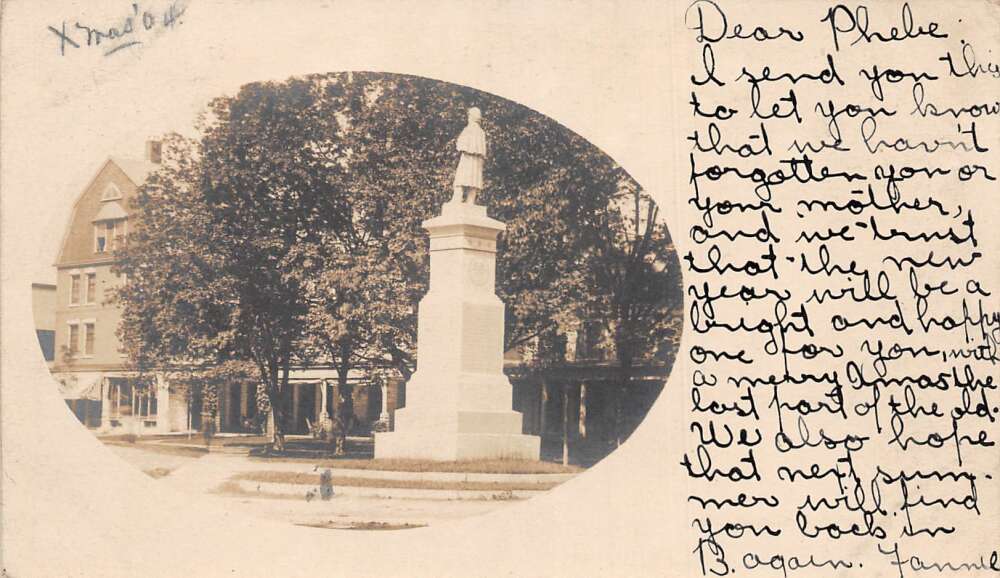 Xmas '04.
Dear Phebe:
I send you this
to let you know
that we havn't
forgotten you or
your mother,
and we trust
that the new
year will be a
bright and happy
one for you, with
a merry Xmas the
last part of the old.
We also hope
that next sum-
mer will find
you back in
B. again. Fannie